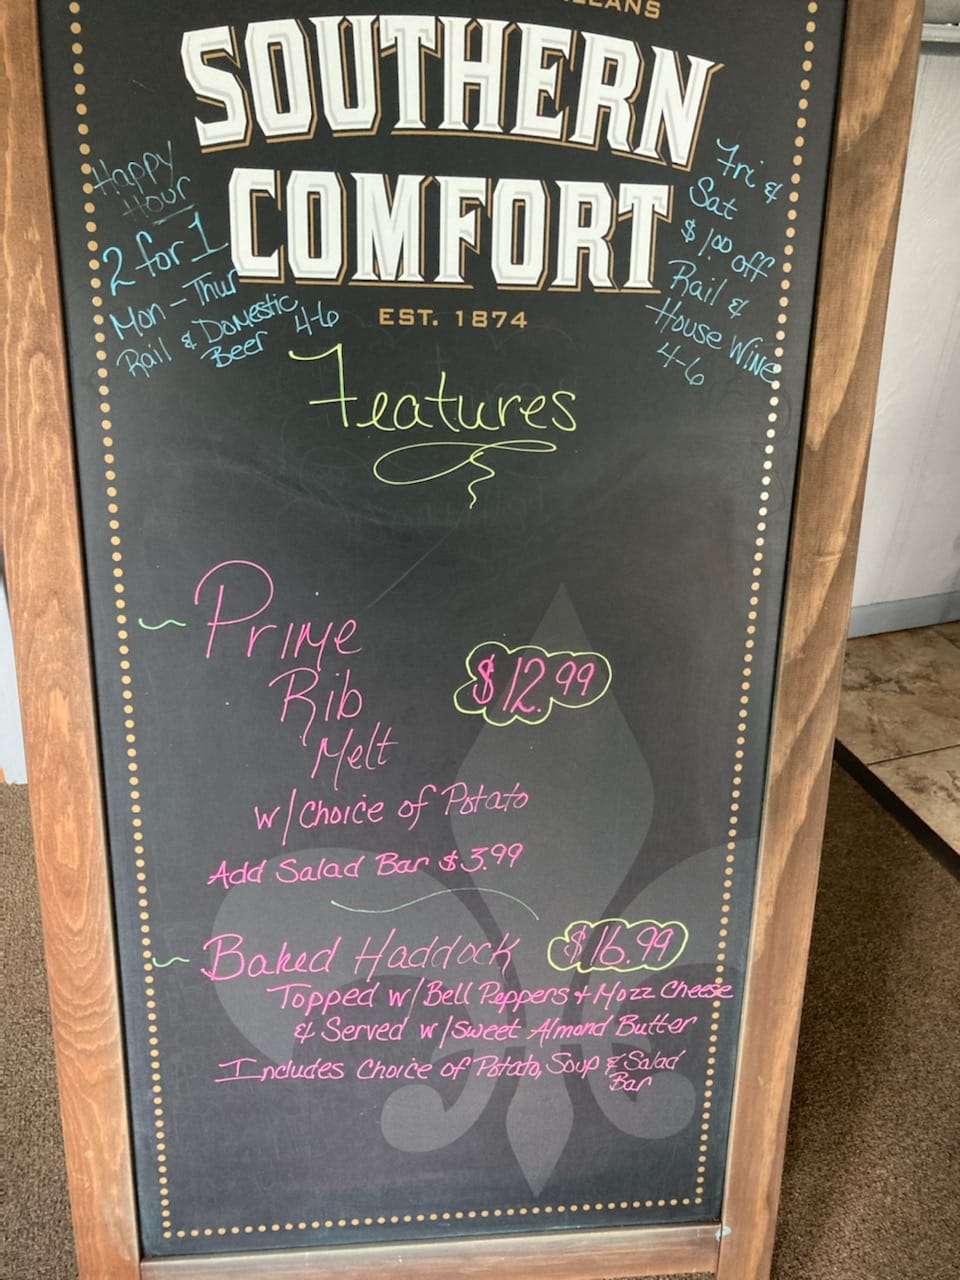 SOUTHERN
COMFORT
EST. 1874
Happy
Hour
2 for 1
Mon - Thur
Rail & Domestic
Beer 4-6
Fri &
Sat
$1.00 off
Rail &
House Wine
4-6
Features
Prime
Rib
Melt
$12.99
w/Choice of Potato
Add Salad Bar $3.99
Baked Haddock $16.99
Topped w/Bell Peppers + Mozz Cheese
& Served w/sweet Almond Butter
Includes Choice of Potato, Soup & Salad
Bar